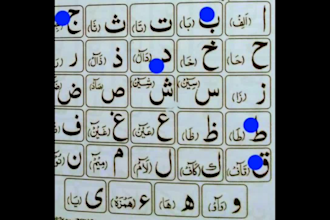 ا (اَلِفْ) ب (بَا) ت (تَا) ث (ثَا) ج
ح (حَا) خ (خَا) د (دَالْ) ذ (ذَالْ) ر
ز (زَا) س (سِيْنْ) ش (شِيْنْ) ص (صَادْ) ض
ط (طَا) ظ (ظَا) ع (عَيْنْ) غ (غَيْنْ) ف
ق (قَافْ) ك (كَافْ) ل (لَامْ) م (مِيْمْ) ن
و (وَاوْ) ه (هَا) ء (هَمْزَهْ) ی (يَا)